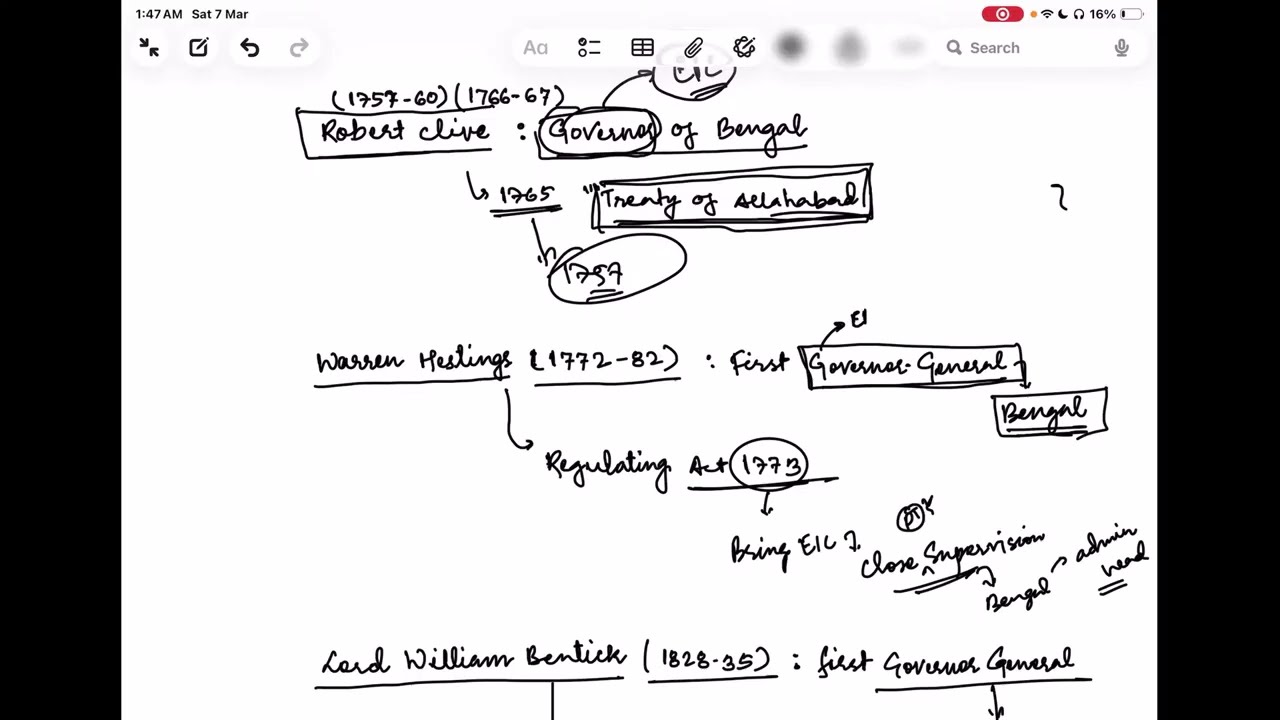 1:47 AM Sat 7 Mar 16%
Aa Search
EIC
(1757-60) (1766-67)
Robert Clive : Governor of Bengal
1765 "Treaty of Allahabad
1757
EI
Warren Hestings (1772-82) : First Governor-General
Bengal
Regulating Act 1773
Bring EIC Close Supervision
Bengal
admin
head
Lord William Bentick (1828-35) : first Governor General